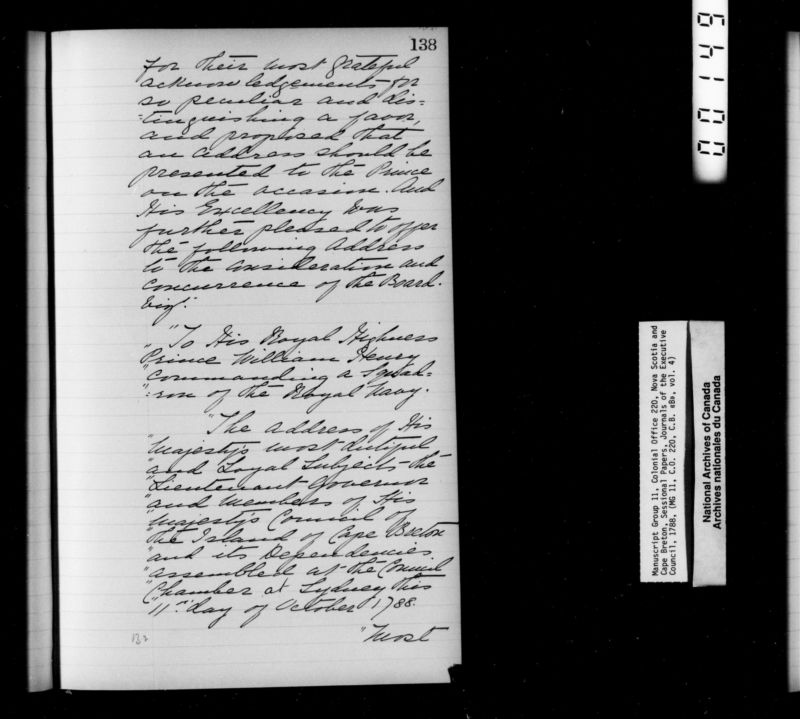 138
for their most grateful
acknowledgements for
so peculiar and dis=
=tinguishing a favor,
and proposed that
an address should be
presented to the Prince
on the occasion. And
His Excellency was
further pleased to offer
the following Address
to the consideration and
concurrence of the Board.
Vizt.
"To His Royal Highness
"Prince William Henry
"commanding a Squad=
"=ron of the Royal Navy.
"The address of His
"Majesty's most dutiful
"and Loyal Subjects the
"Lieutenant Governor
"and Members of His
"Majesty's Council of
"the Island of Cape Breton
"and its Dependencies
"assembled at the Council
"Chamber at Sydney this
"11th day of October 1788.
"Most
132
000149
Manuscript Group 11, Colonial Office 220, Nova Scotia and
Cape Breton, Sessional Papers, Journals of the Executive
Council, 1788, (MG 11, C.O. 220, C.B. «B», vol. 4)
National Archives of Canada
Archives nationales du Canada